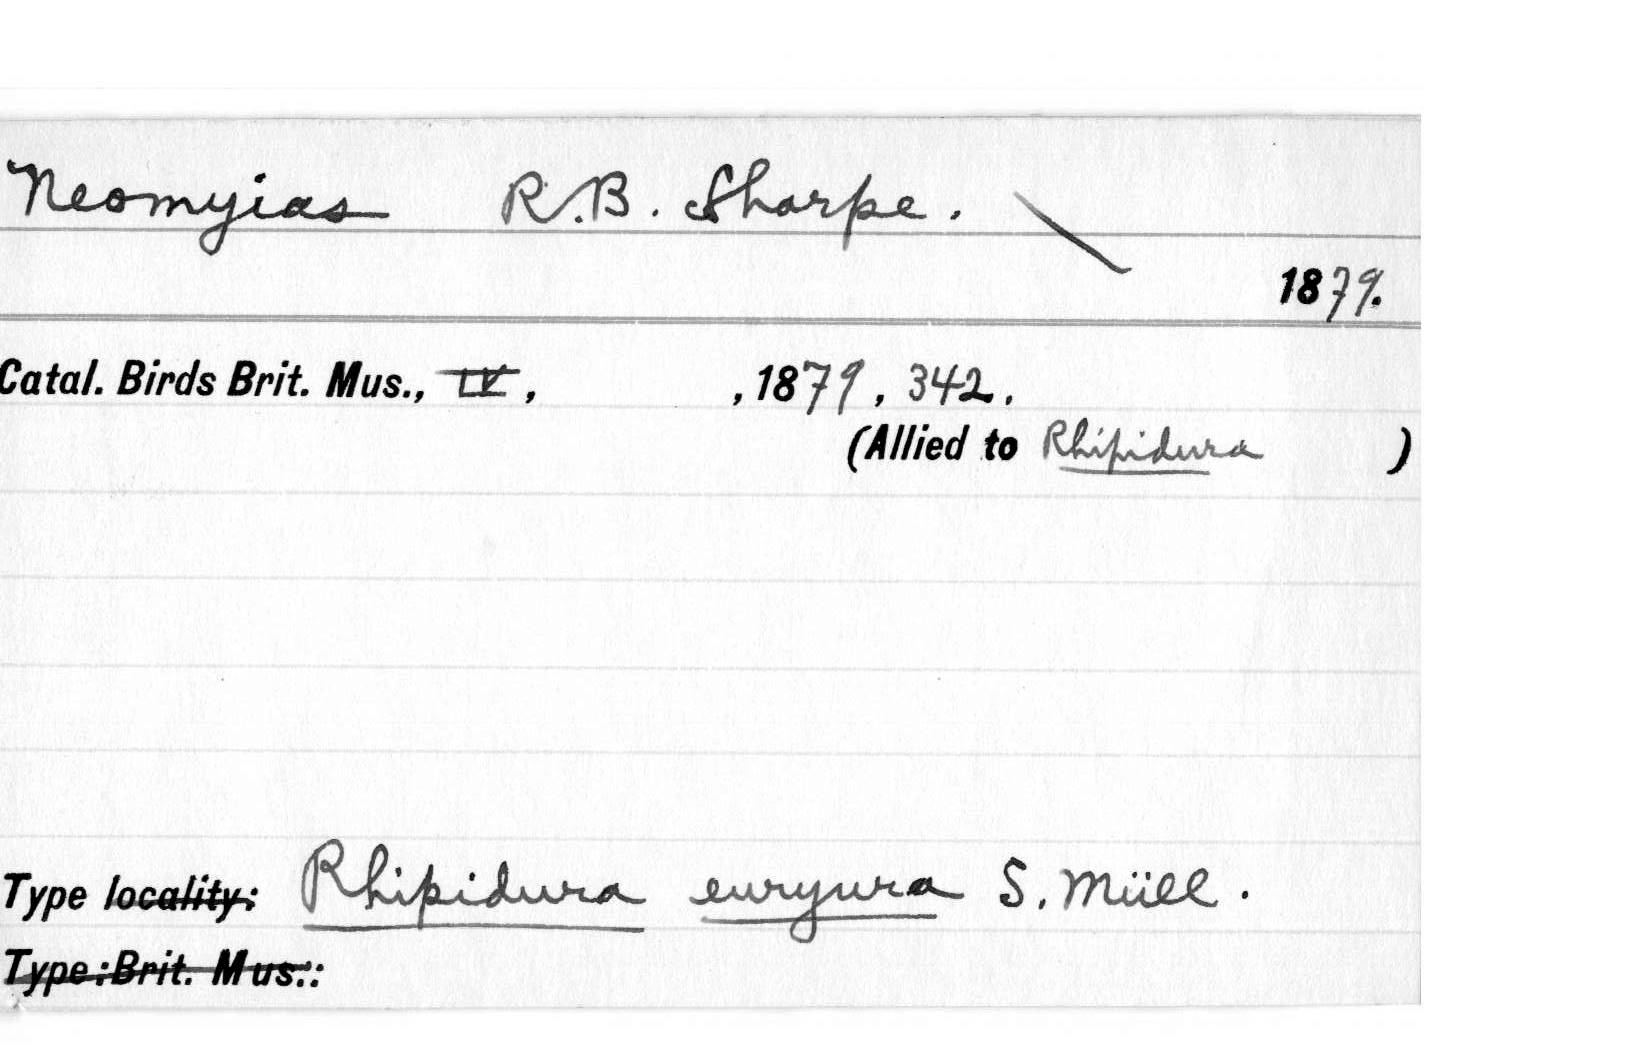 Neomyias R.B. Sharpe.
1879.
Catal. Birds Brit. Mus., IV, , 1879, 342.
(Allied to Rhipidura )
Type locality: Rhipidura euryura S. Müll.
Type: Brit. Mus.: